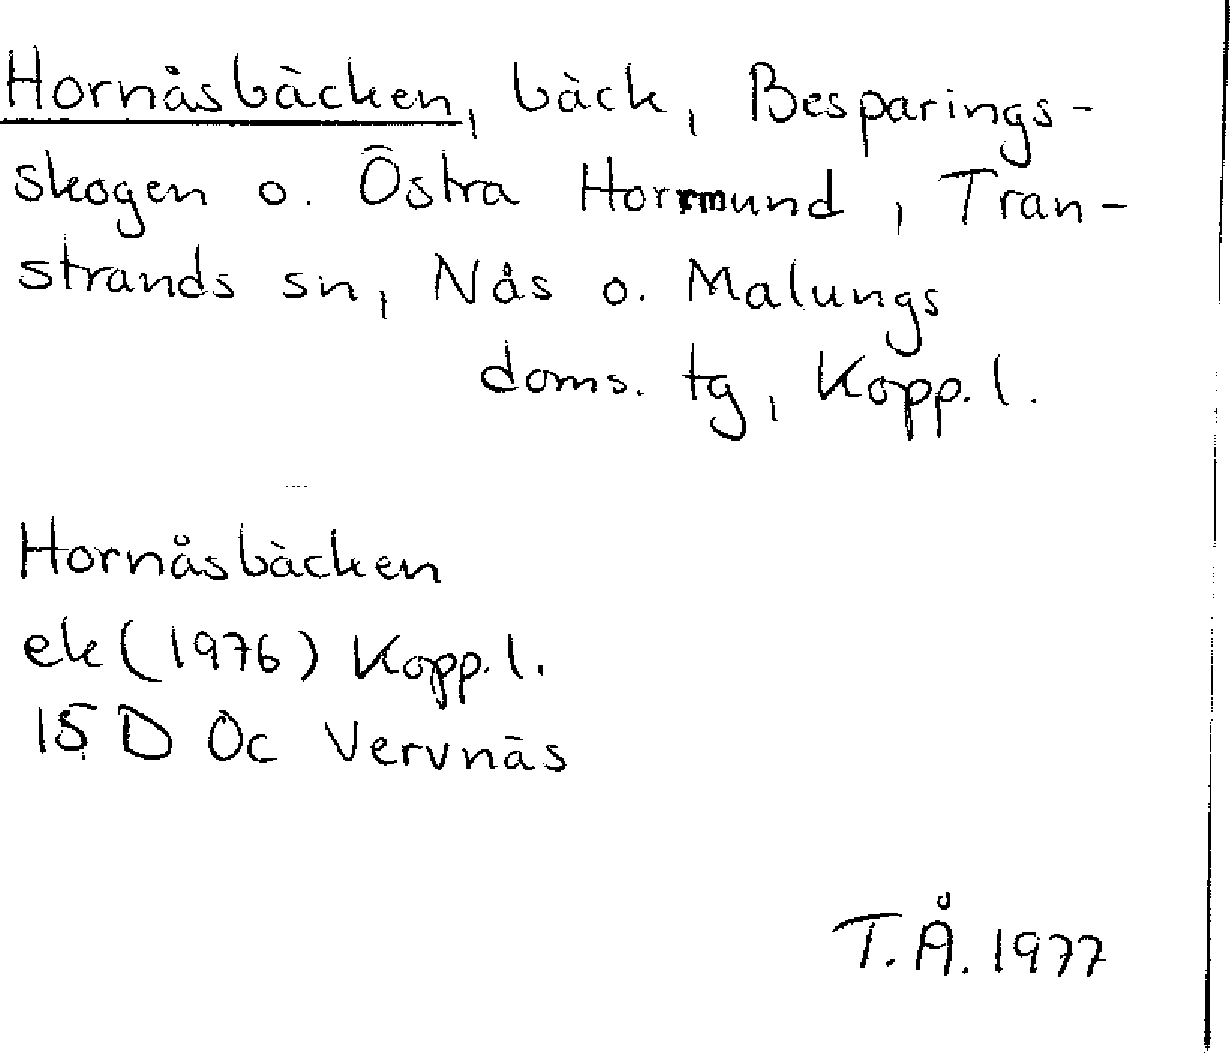 Hornåsbäcken, bäck, Besparings-
skogen o. Östra Hormund, Tran-
strands sn, Nås o. Malungs
doms. tg, Kopp. l.
Hornåsbäcken
ek (1976) Kopp. l.
15 D Oc Vervnäs
T.Å. 1977